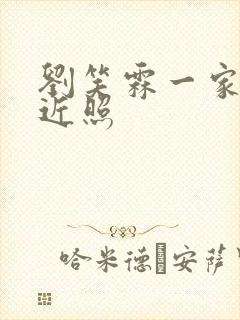 劉笑霖一家
近照
哈米德·安薩